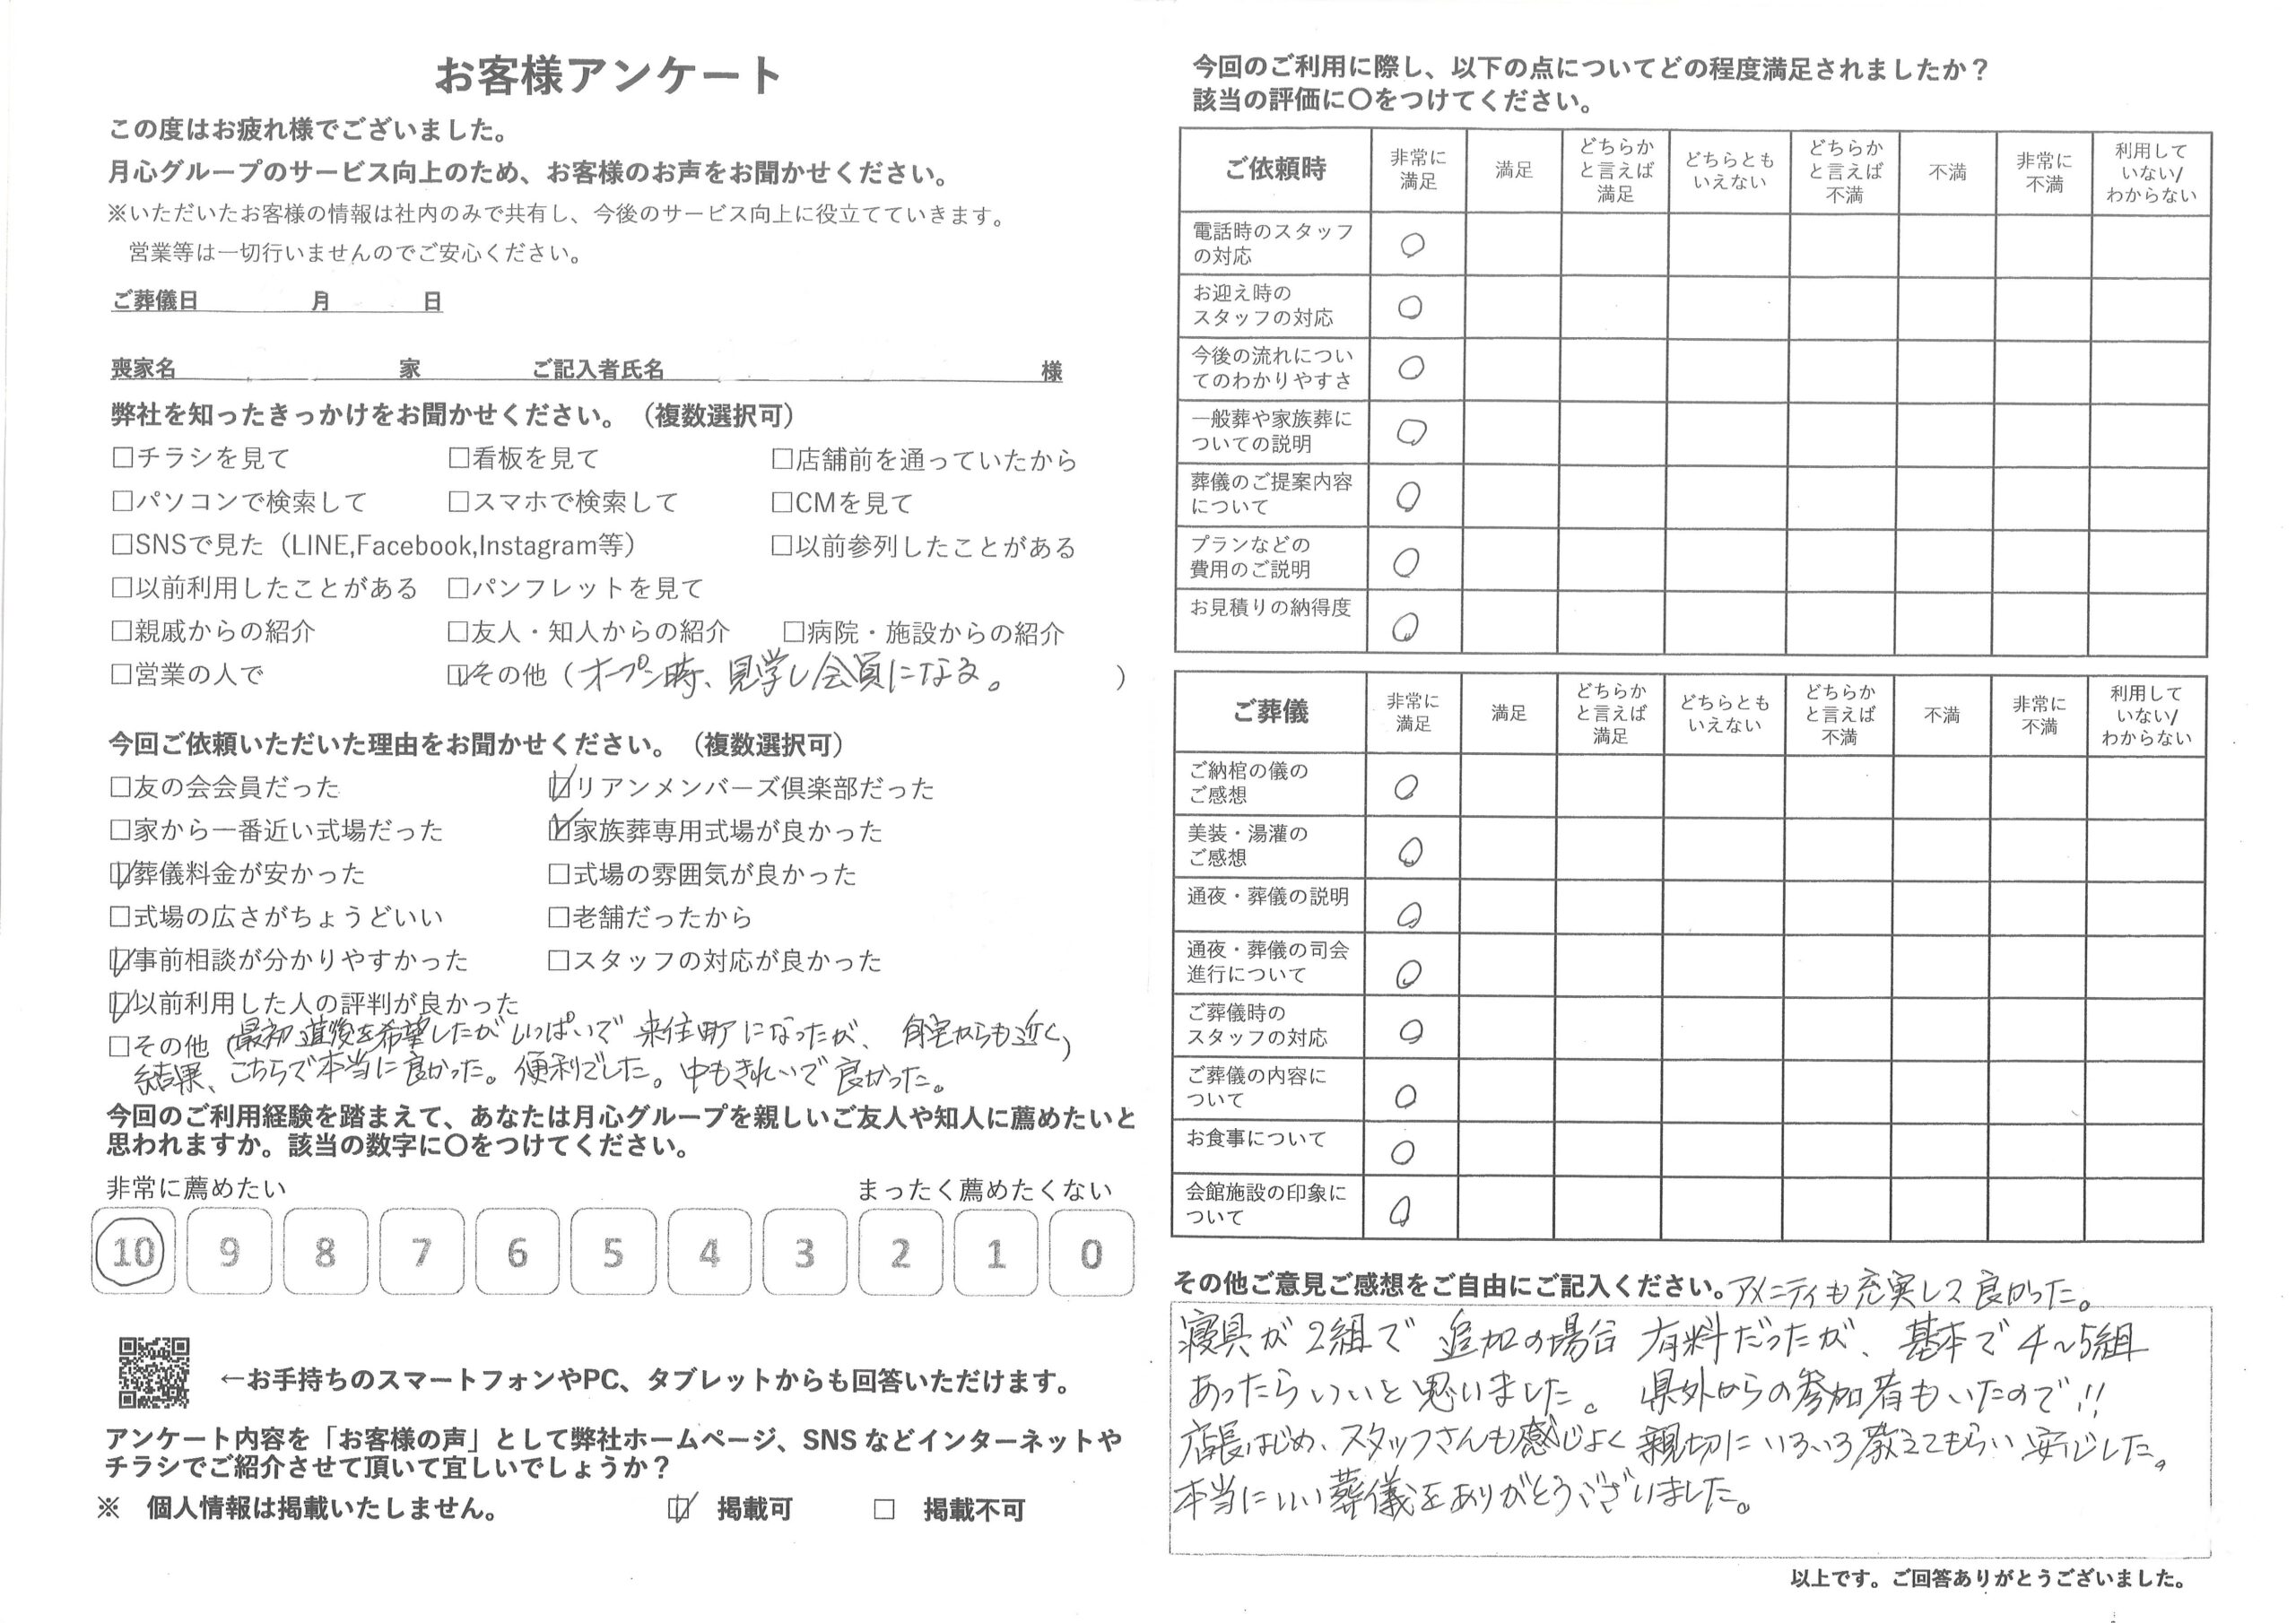 お客様アンケート
この度はお疲れ様でございました。
月心グループのサービス向上のため、お客様のお声をお聞かせください。
※いただいたお客様の情報は社内のみで共有し、今後のサービス向上に役立てていきます。
営業等は一切行いませんのでご安心ください。
ご葬儀日 月 日
喪家名 家 ご記入者氏名 様
弊社を知ったきっかけをお聞かせください。（複数選択可）
□チラシを見て □看板を見て □店舗前を通っていたから
□パソコンで検索して □スマホで検索して □CMを見て
□SNSで見た（LINE,Facebook,Instagram等） □以前参列したことがある
□以前利用したことがある □パンフレットを見て
□親戚からの紹介 □友人・知人からの紹介 □病院・施設からの紹介
□営業の人で ☑その他（オープン時、見学し会員になる。）
今回ご依頼いただいた理由をお聞かせください。（複数選択可）
□友の会会員だった ☑リアンメンバーズ倶楽部だった
□家から一番近い式場だった ☑家族葬専用式場が良かった
☑葬儀料金が安かった □式場の雰囲気が良かった
□式場の広さがちょうどいい □老舗だったから
☑事前相談が分かりやすかった □スタッフの対応が良かった
☑以前利用した人の評判が良かった
□その他（最初道後を希望したがいっぱいで来住町になったが、自宅からも近く）
結果、こちらで本当に良かった。便利でした。中もきれいで良かった。
今回のご利用経験を踏まえて、あなたは月心グループを親しいご友人や知人に薦めたいと
思われますか。該当の数字に〇をつけてください。
非常に薦めたい まったく薦めたくない
10 9 8 7 6 5 4 3 2 1 0
←お手持ちのスマートフォンやPC、タブレットからも回答いただけます。
アンケート内容を「お客様の声」として弊社ホームページ、SNS などインターネットや
チラシでご紹介させて頂いて宜しいでしょうか？
※ 個人情報は掲載いたしません。 ☑ 掲載可 □ 掲載不可
今回のご利用に際し、以下の点についてどの程度満足されましたか？
該当の評価に〇をつけてください。
ご依頼時 非常に満足 満足 どちらかと言えば満足 どちらともいえない どちらかと言えば不満 不満 非常に不満 利用していない/わからない
電話時のスタッフ
の対応 〇
お迎え時の
スタッフの対応 〇
今後の流れについ
てのわかりやすさ 〇
一般葬や家族葬に
ついての説明 〇
葬儀のご提案内容
について 〇
プランなどの
費用のご説明 〇
お見積りの納得度 〇
ご葬儀 非常に満足 満足 どちらかと言えば満足 どちらともいえない どちらかと言えば不満 不満 非常に不満 利用していない/わからない
ご納棺の儀の
ご感想 〇
美装・湯灌の
ご感想 〇
通夜・葬儀の説明 〇
通夜・葬儀の司会
進行について 〇
ご葬儀時の
スタッフの対応 〇
ご葬儀の内容に
ついて 〇
お食事について 〇
会館施設の印象に
ついて 〇
その他ご意見ご感想をご自由にご記入ください。アメニティも充実して良かった。
寝具が2組で追加の場合有料だったが、基本で4～5組
あったらいいと思いました。県外からの参加者もいたので!!
店長はじめ、スタッフさんも感じよく親切にいろいろ教えてもらい安心した。
本当にいい葬儀をありがとうございました。
以上です。ご回答ありがとうございました。